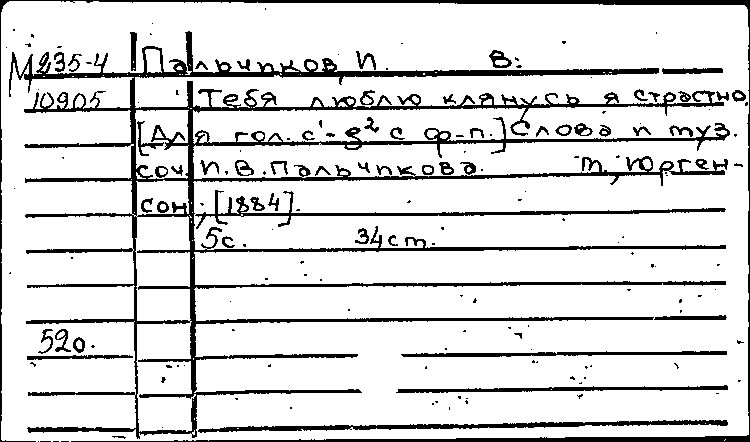 М 235-4 Пальчиков, И. В.
10905 Тебя люблю клянусь я страстно.
[Для гол. c¹-g² с ф-п.] Слова и муз.
соч. И.В. Пальчикова. М., Юрген-
сон, [1884].
5с. 34см.
520.